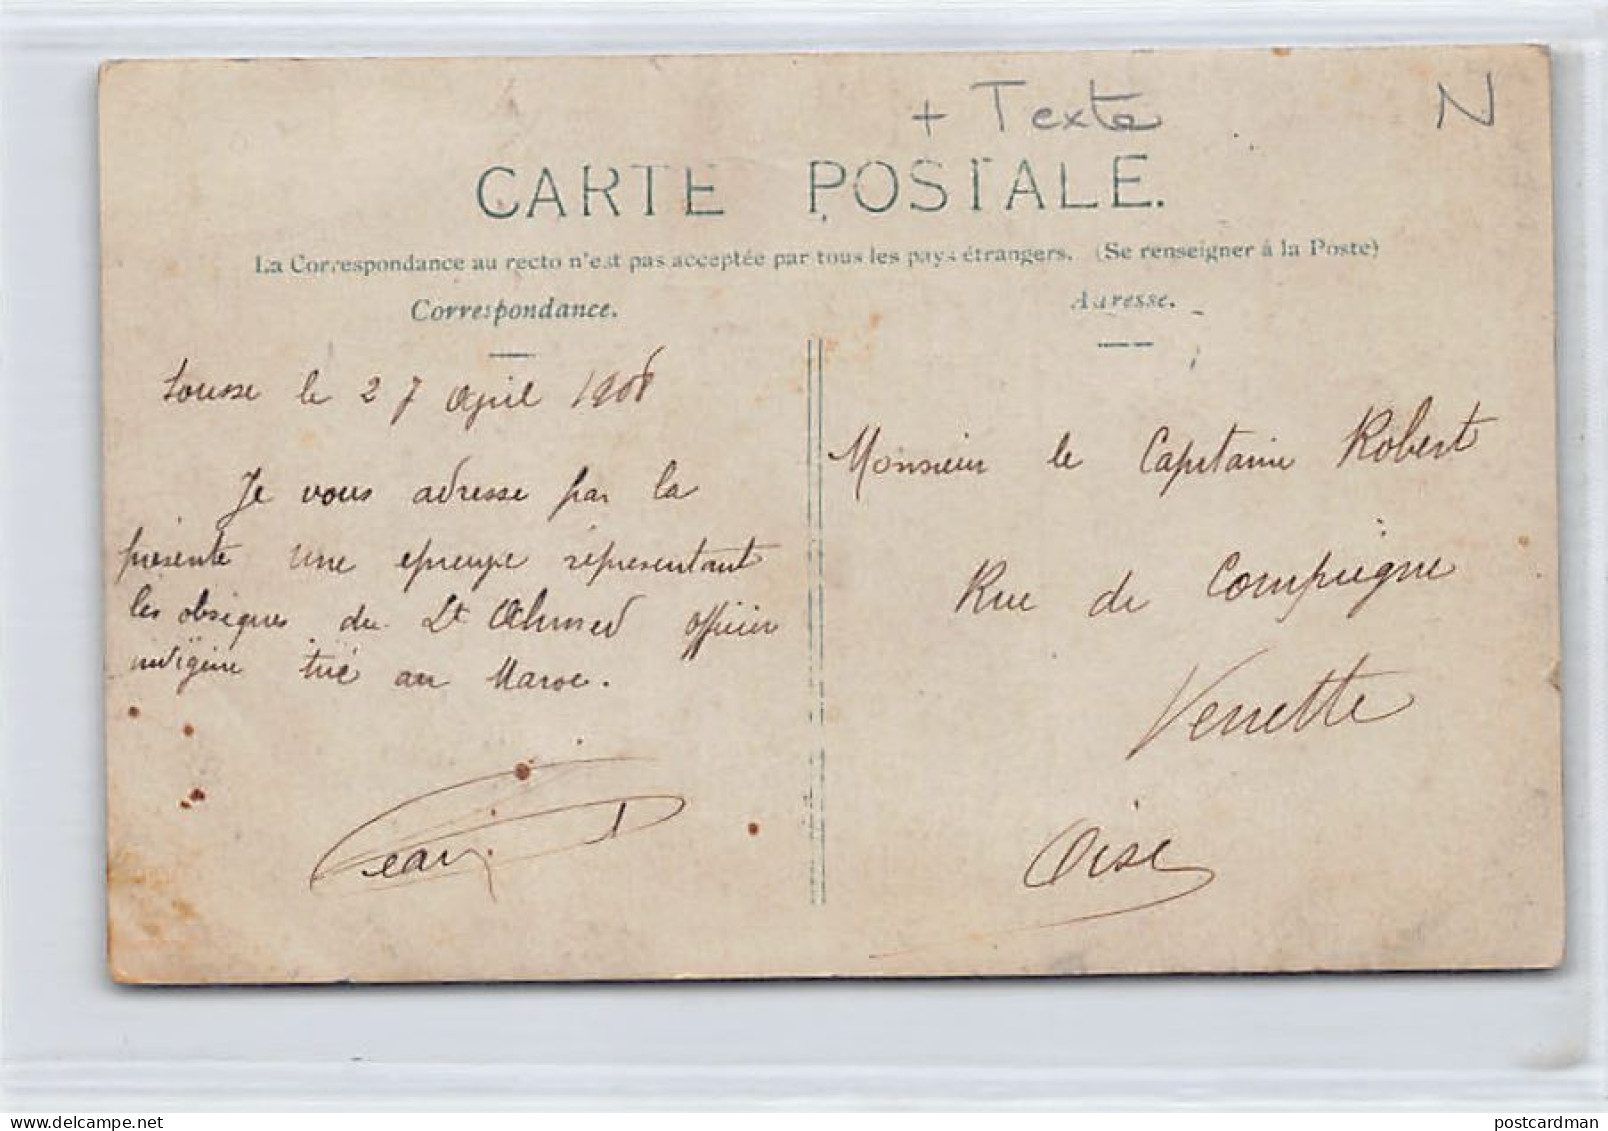 + Texte
N
CARTE POSTALE.
La Correspondance au recto n'est pas acceptée par tous les pays étrangers. (Se renseigner à la Poste)
Correspondance.
Adresse.
Sousse le 27 April 1908
Je vous adresse par la
présente une epreuve représentant
les obsèques du Lt Ahmed officier
indigène tué au Maroc.
Jean
Monsieur le Capitaine Robert
Rue de Compiègne
Venette
Oise
postcardman